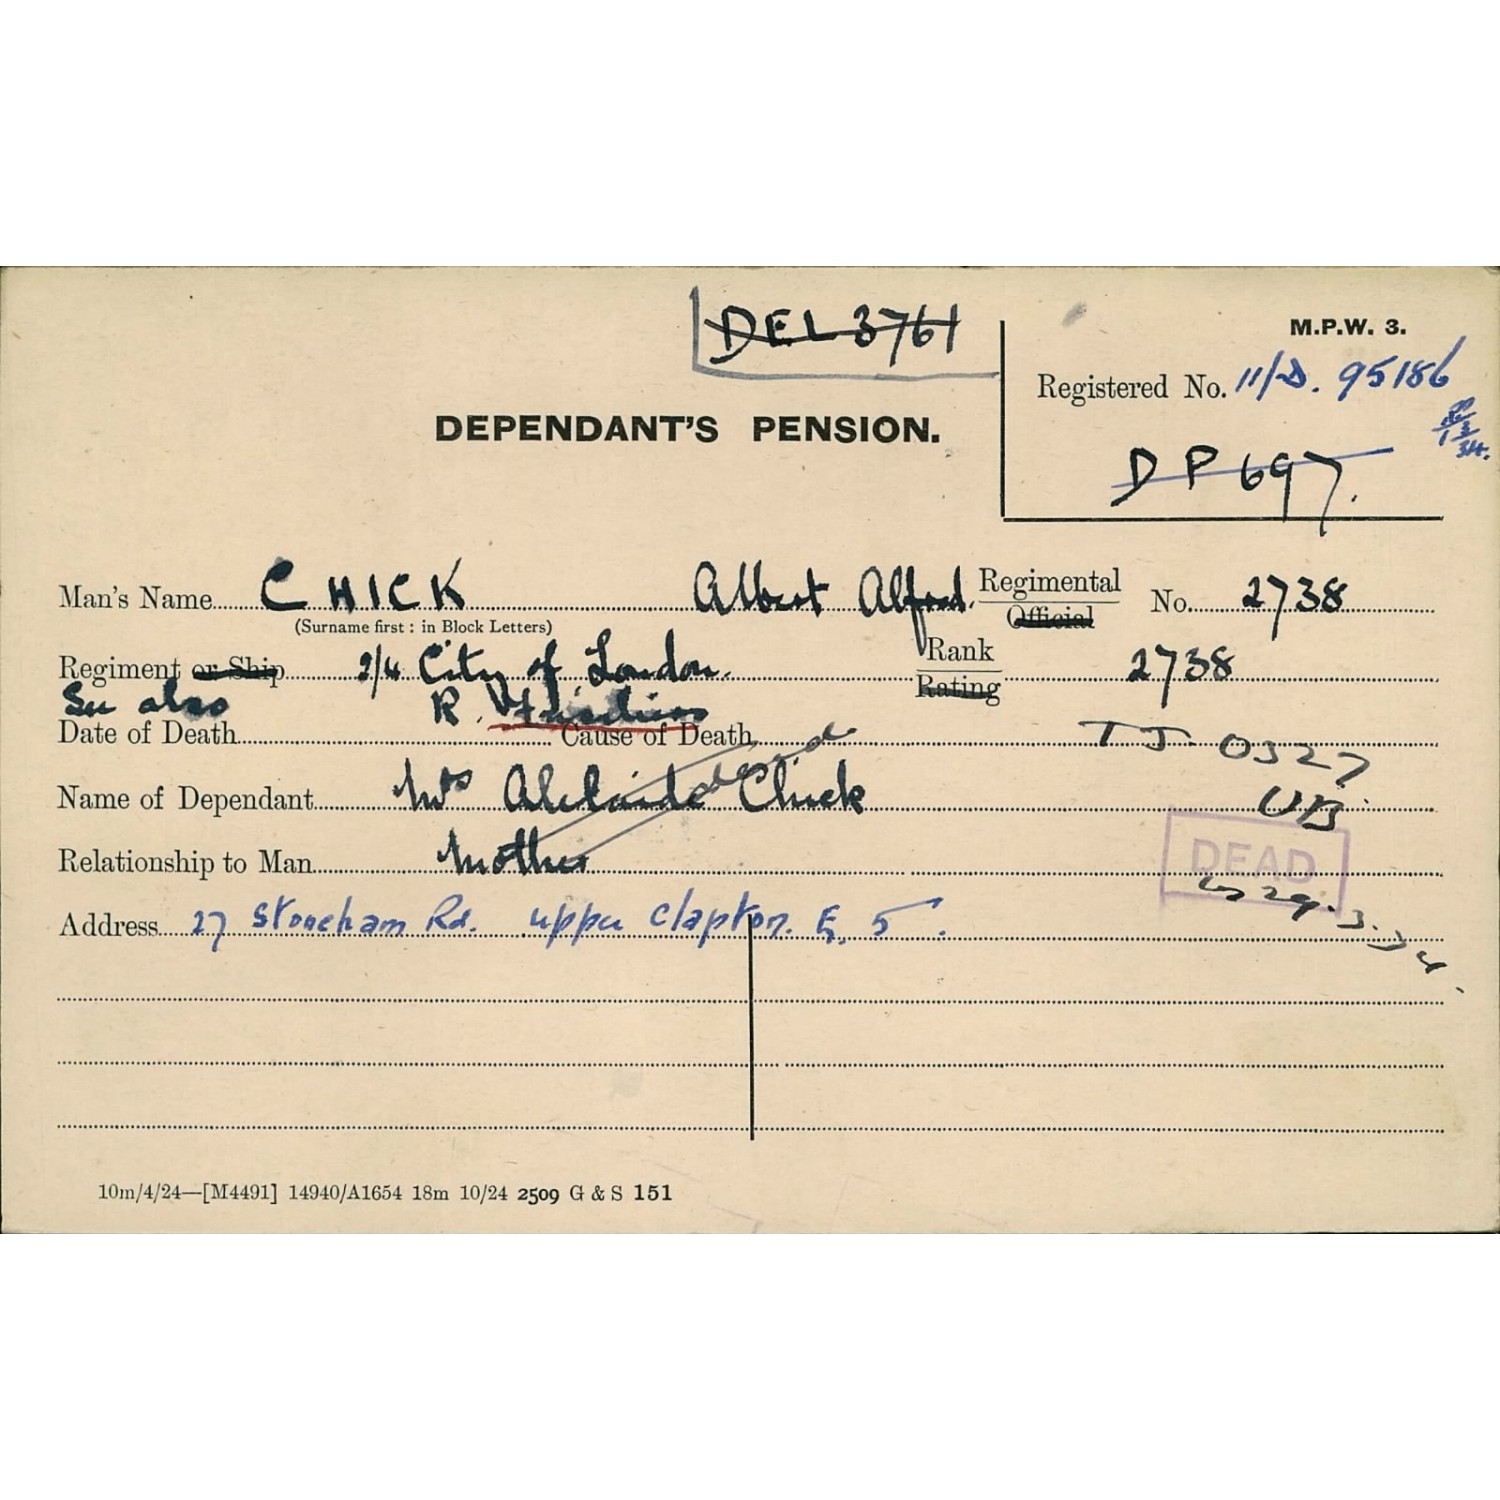 DEL 3761
M.P.W. 3.
Registered No. 11/D. 95186
DEPENDANT'S PENSION.
DP 697.
Man's Name CHICK Albert Alfred. Regimental Official No. 2738
(Surname first : in Block Letters)
Regiment or Ship 2/4 City of London. Rank Rating 2738
See also R. Fusiliers
Date of Death Cause of Death
TJ 0327
Name of Dependant Mrs Adelaide Chick dead
UB
Relationship to Man Mother
DEAD
29.3.34.
Address 27 Stoneham Rd. Upper Clapton. E. 5.
10m/4/24—[M4491] 14940/A1654 18m 10/24 2509 G & S 151